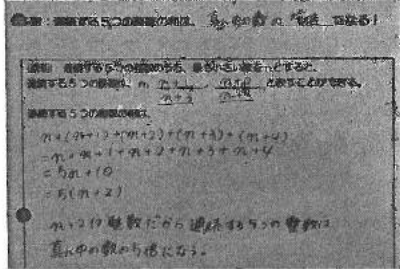 ：連続する5つの整数の和は、真ん中の数の5倍 になる！
説明：連続する5つの整数のうち、最も小さい数をnとすると、
連続する5つの整数は、n, n+1, n+2, n+3, n+4 と表すことができる。
連続する5つの整数の和は、
n+(n+1)+(n+2)+(n+3)+(n+4)
=n+n+1+n+2+n+3+n+4
=5n+10
=5(n+2)
n+2は整数だから連続する5つの整数は
真ん中の数の5倍になる。